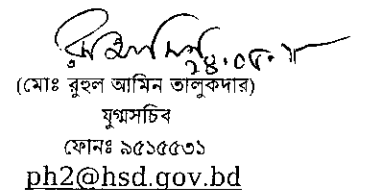 (মোঃ রুহুল আমিন তালুকদার)
যুগ্মসচিব
ফোনঃ ৯৫১৫৫৩১
ph2@hsd.gov.bd